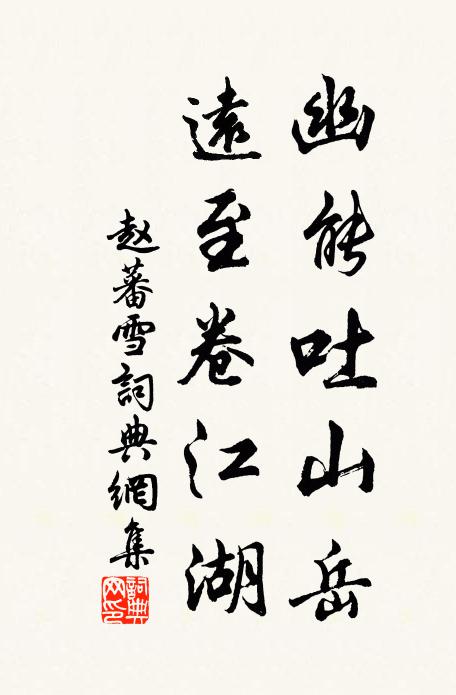 幽能吐山岳
遠至卷江湖
赵蕃雪詞典網集
詞典网印